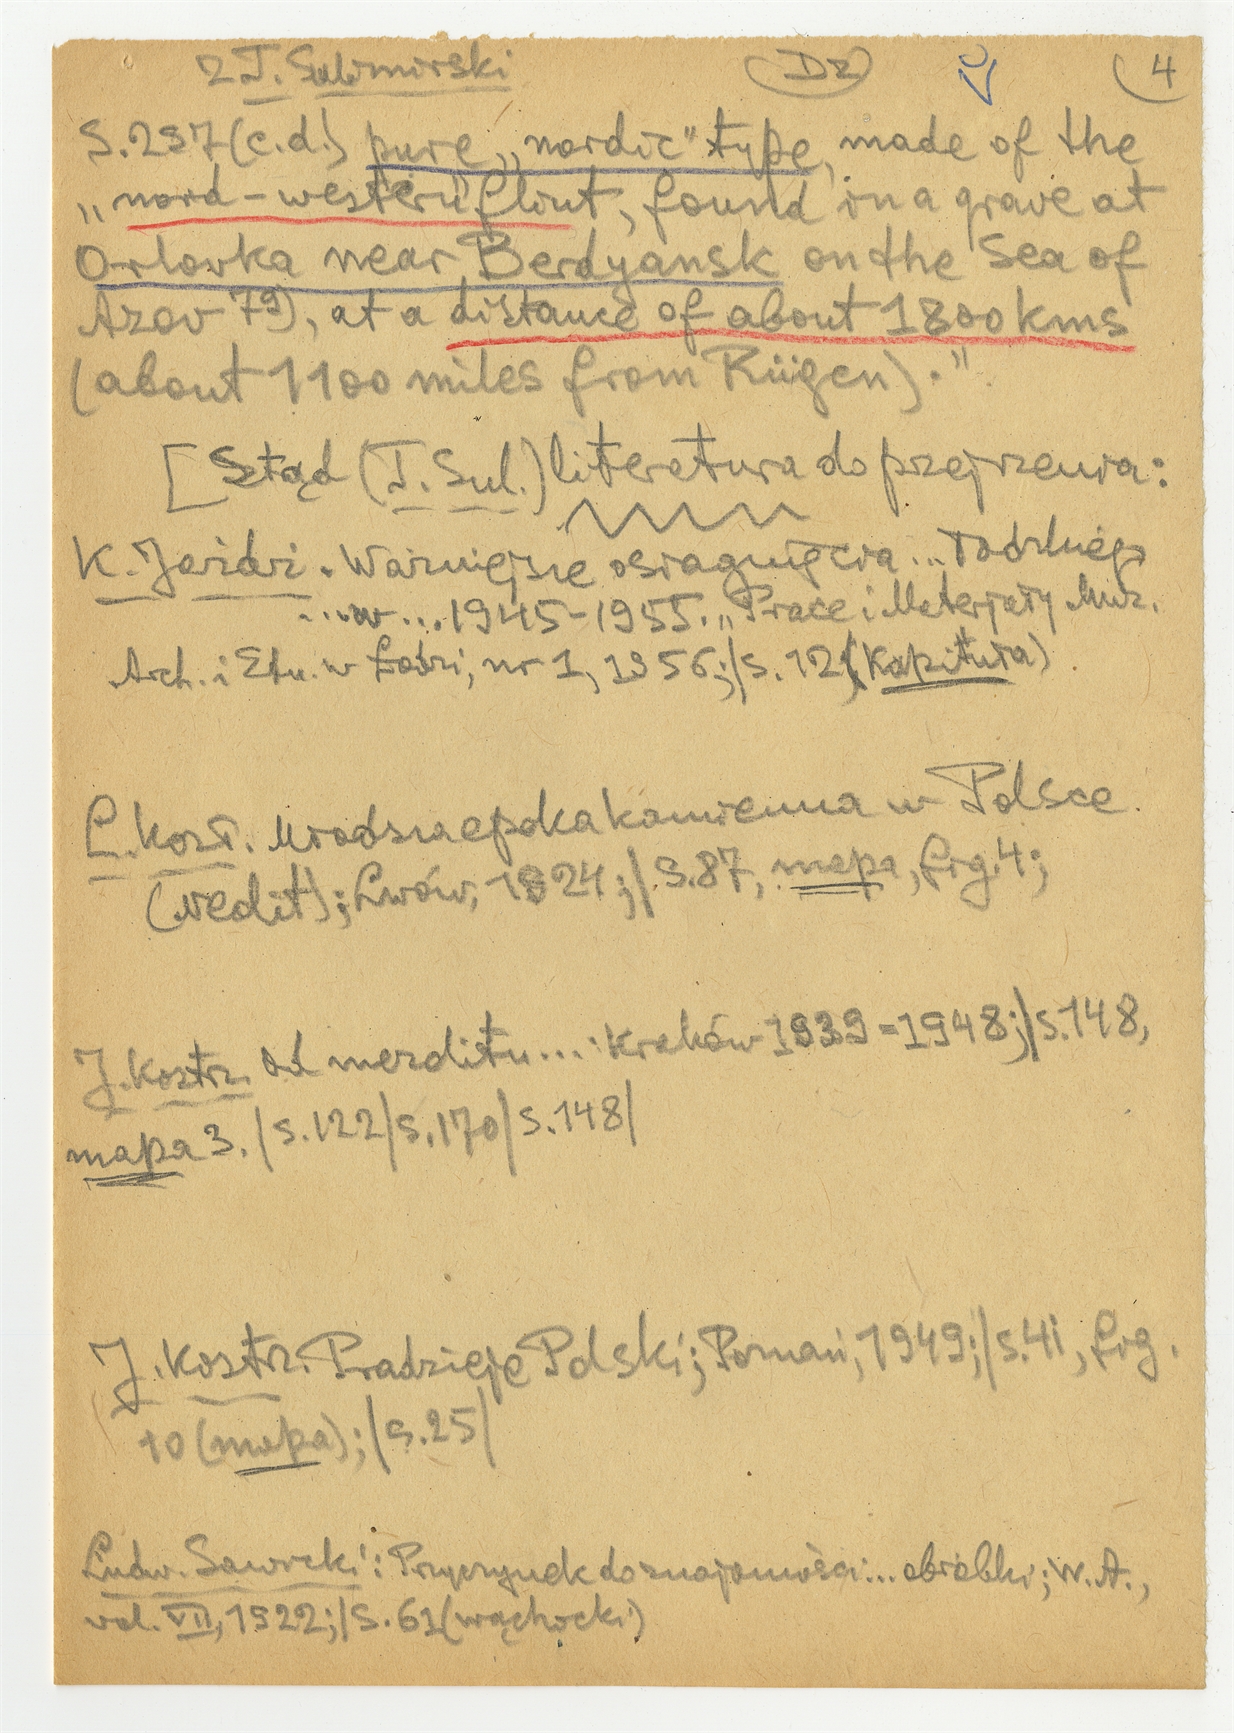 z T. Sulimirski Dz 4
S.297 (c.d.) pure „nordic" type, made of the
„nord-western" flint, found in a grave at
Orlovka near Berdyansk on the Sea of
Azov 79), at a distance of about 1800 kms
(about 1100 miles from Rügen)."
[Stąd (T. Sul.) literatura do przejrzenia:
K. Jażdż. Ważniejsze osiągnięcia ...
...w... 1945-1955. „Prace i Materjały Muz.
Arch. i Etn. w Łodzi, nr 1, 1956;/s. 12 (Kapituła)
L. Kozł. Młodsza epoka kamienna w Polsce
(neolit); Lwów, 1924;/s.87, mapa, fig. 4;
J. Kostrz. Od mezolitu...: Kraków 1939=1948;/s.148,
mapa 3. /s.122/s.170/s.148/
J. Kostrz. Pradzieje Polski; Poznań, 1949;/s.41, fig.
10 (mapa);/s.25/
Ludw. Sawicki: Przyczynek do znajomości... obróbki; W.A.,
vol. VII, 1922;/s. 61 (wąchocki)